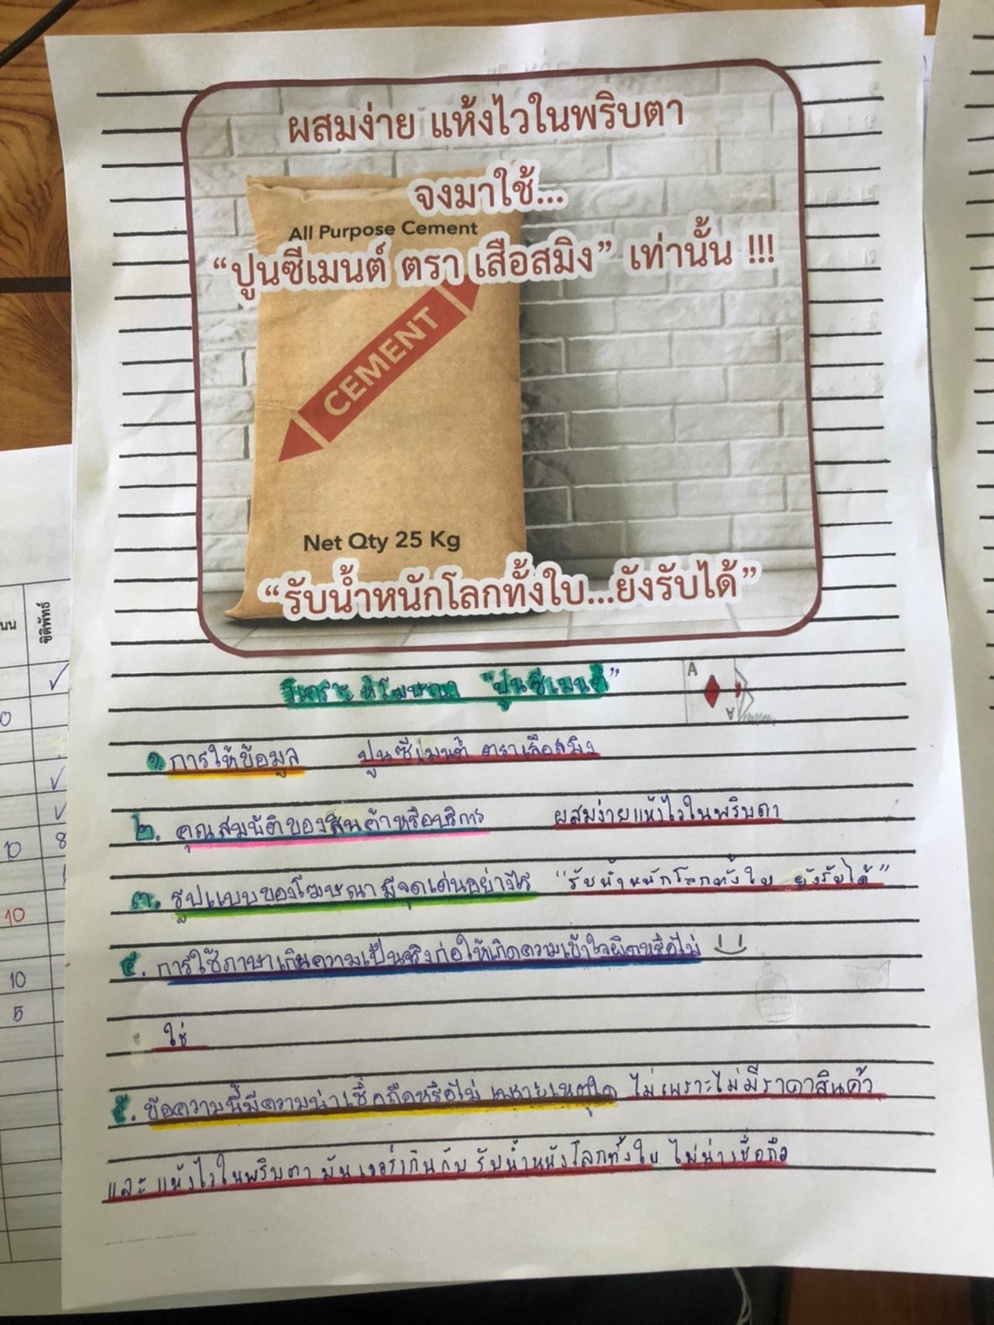 ผสมง่าย แห้งไวในพริบตา
จงมาใช้...
All Purpose Cement
“ปูนซีเมนต์ ตรา เสือสมิง” เท่านั้น !!!
CEMENT
Net Qty 25 Kg
“รับน้ำหนักโลกทั้งใบ...ยังรับได้”
วิเคราะห์โฆษณา “ปูนซีเมนต์”
A
A
๑. การให้ข้อมูล ปูนซีเมนต์ ตราเสือสมิง
๒. คุณสมบัติของสินค้าหรือบริการ ผสมง่ายแห้งไวในพริบตา
๓. รูปแบบของโฆษณามีจุดเด่นอย่างไร “รับน้ำหนักโลกทั้งใบ ยังรับได้”
๔. การใช้ภาษาเกินความเป็นจริงก่อให้เกิดความเข้าใจผิดหรือไม่
ใช่
๕. ข้อความนี้มีความน่าเชื่อถือหรือไม่ เพราะเหตุใด ไม่เพราะไม่มีราคาสินค้า
และ แห้งไวในพริบตา มันเวอร์เกินกับ รับน้ำหนังโลกทั้งใบ ไม่น่าเชื่อถือ
นน
ชิติพัทธ์
0
10
8
10
10
5